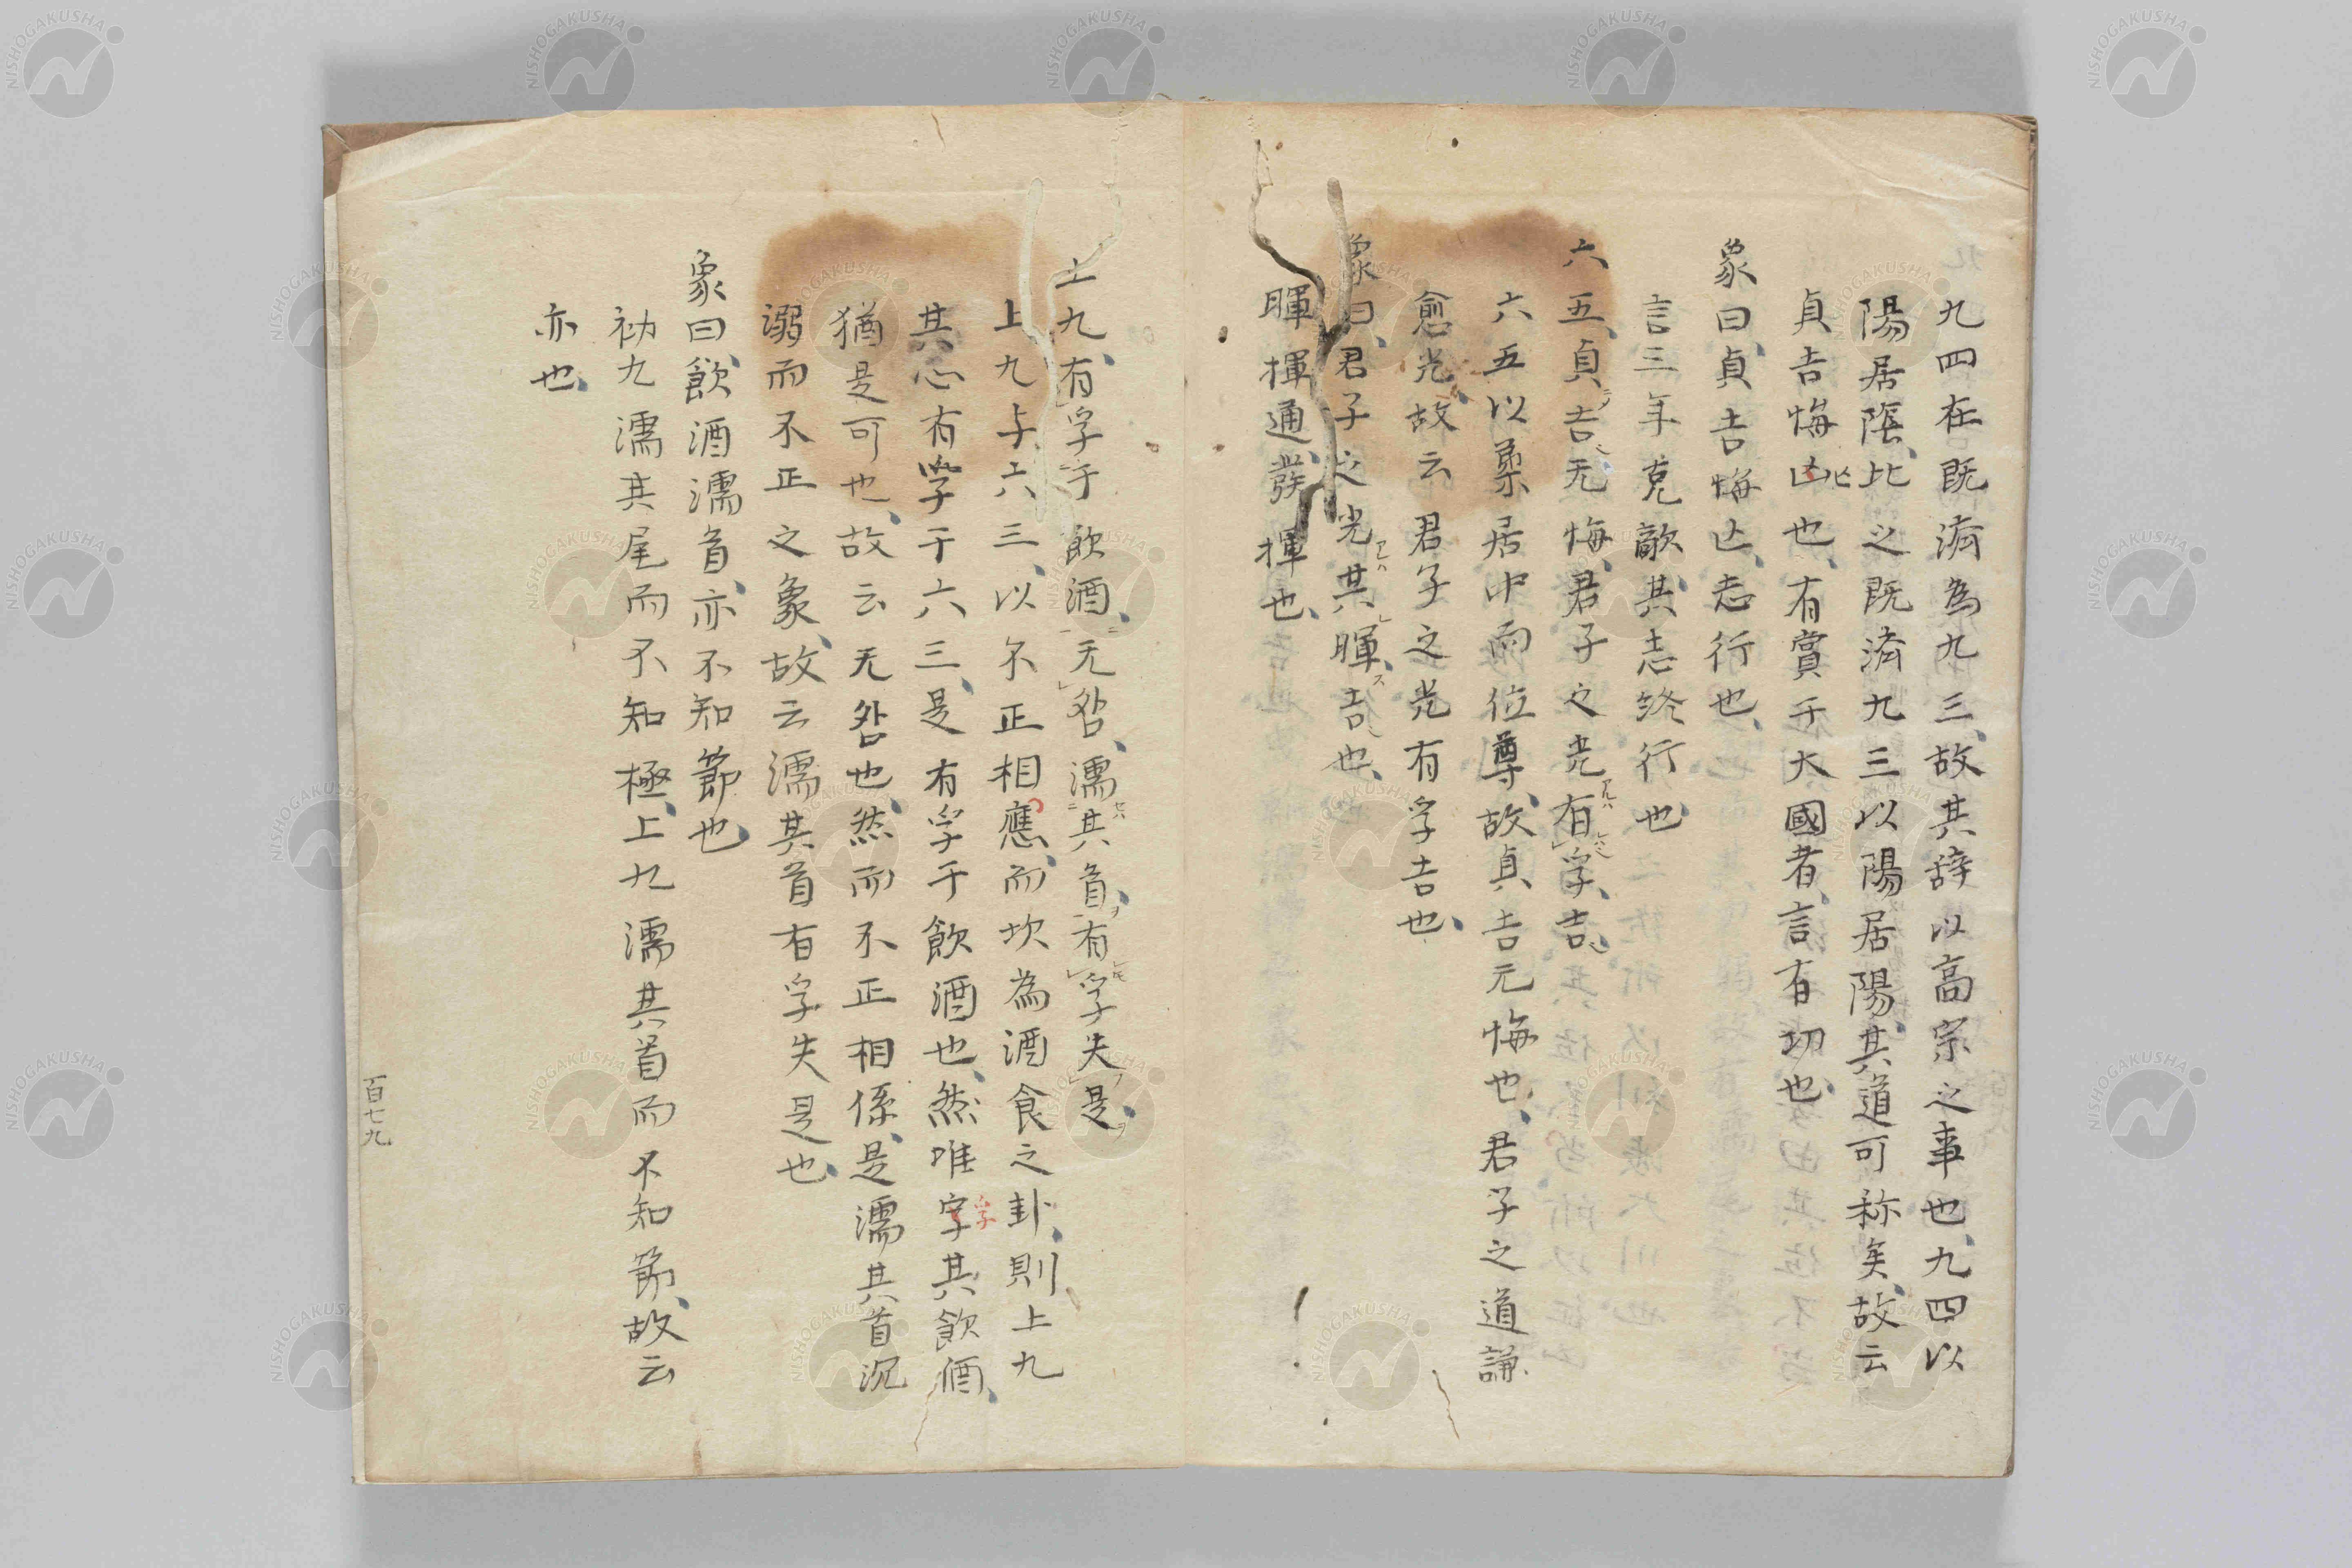 九四在既濟為九三、故其辞以高宗之事也、九四以
陽居陰、比之既濟九三以陽居陽、其道可称矣、故云
貞吉悔亡也、有賞于大國者、言有功也、
象曰、貞吉悔亡、志行也、
言三年克敵、其志終行也、
六五、貞吉、无悔、君子之光、有孚、吉、
六五以柔居中而位尊、故貞吉元悔也、君子之道謙
愈光、故云君子之光有孚吉也、
象曰、君子之光、其暉吉也、
暉揮通、發揮也、
上九、有孚于飲酒、无咎、濡其首、有孚失是、
上九与六三、以不正相應、而坎為酒食之卦、則上九
其心有孚于六三、是有孚于飲酒也、然唯字其飲酒、
孚
猶是可也、故云无咎也、然而不正相係、是濡其首沉
溺而不正之象、故云濡其首有孚失是也、
象曰、飲酒濡首、亦不知節也、
初九濡其尾而不知極、上九濡其首而不知節、故云
亦也、
百七九
NISHOGAKUSHA